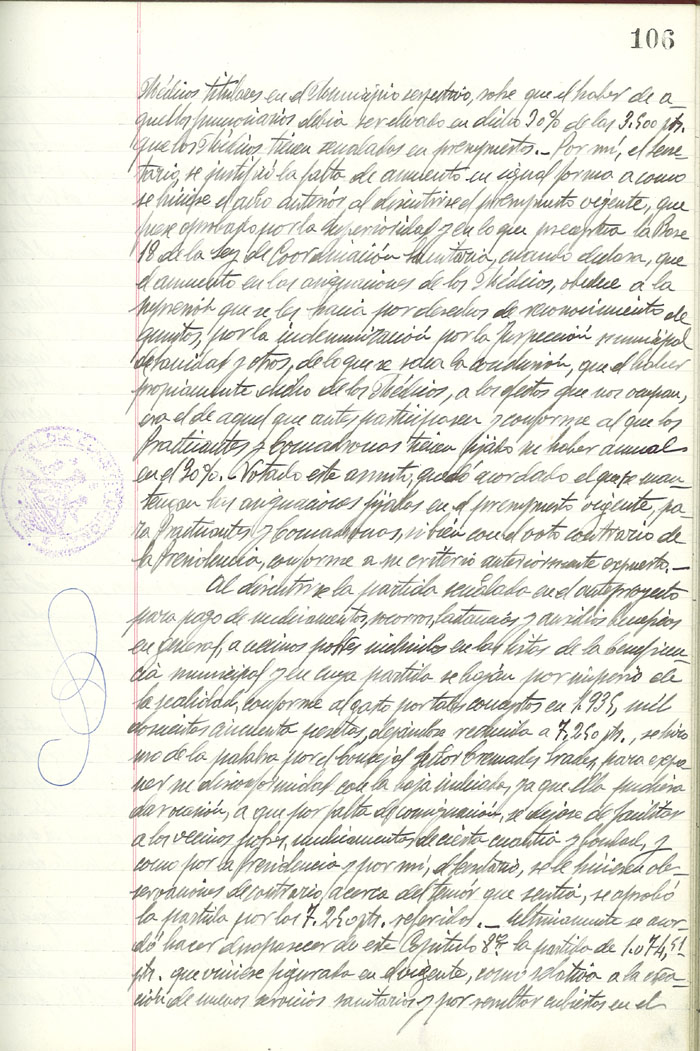 106
Médicos titulares en el Municipio respectivo, sobre que el haber de a-
quellos funcionarios debía ser elevado en dicho 30% de las 3.500 pts.
que los Médicos tienen señaladas en presupuesto.- Por mí, el Secre-
tario, se justificó la falta de aumento en igual forma a como
se hiciese el año anterior al discutirse el presupuesto vigente, que
fuese aprobado por la Superioridad y en lo que preceptúa la Base
18 de la Ley de Coordinación Sanitaria, cuando declara, que
el aumento en las asignaciones de los Médicos, obedece a la
supresión que se les hacía por derechos de reconocimiento de
quintos, por la indemnización por la Inspección municipal
de Sanidad y otros, de lo que se saca la conclusión, que el haber
propiamente dicho de los Médicos, a los efectos que nos ocupan,
era el de aquel que antes participasen y conforme al que los
Practicantes y Comadronas tienen fijado su haber anual
en el 30%.- Votado este asunto, quedó acordado el que se man-
tengan las asignaciones fijadas en el presupuesto vigente, pa-
ra Practicantes y Comadronas, si bien con el voto contrario de
la Presidencia, conforme a su criterio anteriormente expuesto.-
Al discutirse la partida señalada en el anteproyecto
para pago de medicamentos, socorros, lactancias y auxilios benéficos
en general, a vecinos pobres incluidos en las listas de la beneficen-
cia municipal y en cuya partida se bajan por imperio de
la realidad, conforme al gasto por tales conceptos en 1.935, mil
doscientas cincuenta pesetas, dejándose reducida a 7.250 pts., se hizo
uso de la palabra por el Concejal Señor para expo-
ner su disconformidad con la baja indicada, ya que ella pudiera
dar ocasión, a que por falta de consignación, se dejase de facilitar
a los vecinos pobres, medicamentos de cierta cuantía y bondad, y
como por la Presidencia y por mí, el Secretario, se le hiciesen ob-
servaciones de contrario, acerca del temor que sentía, se aprobó
la partida por las 7.250 pts. referidas.- Ultimamente se acor-
dó hacer desaparecer de este Capítulo 8º la partida de 1.074,51
pts. que viniese figurada en el vigente, como relativa a la crea-
ción de nuevos servicios sanitarios y por resultar cubiertos en el